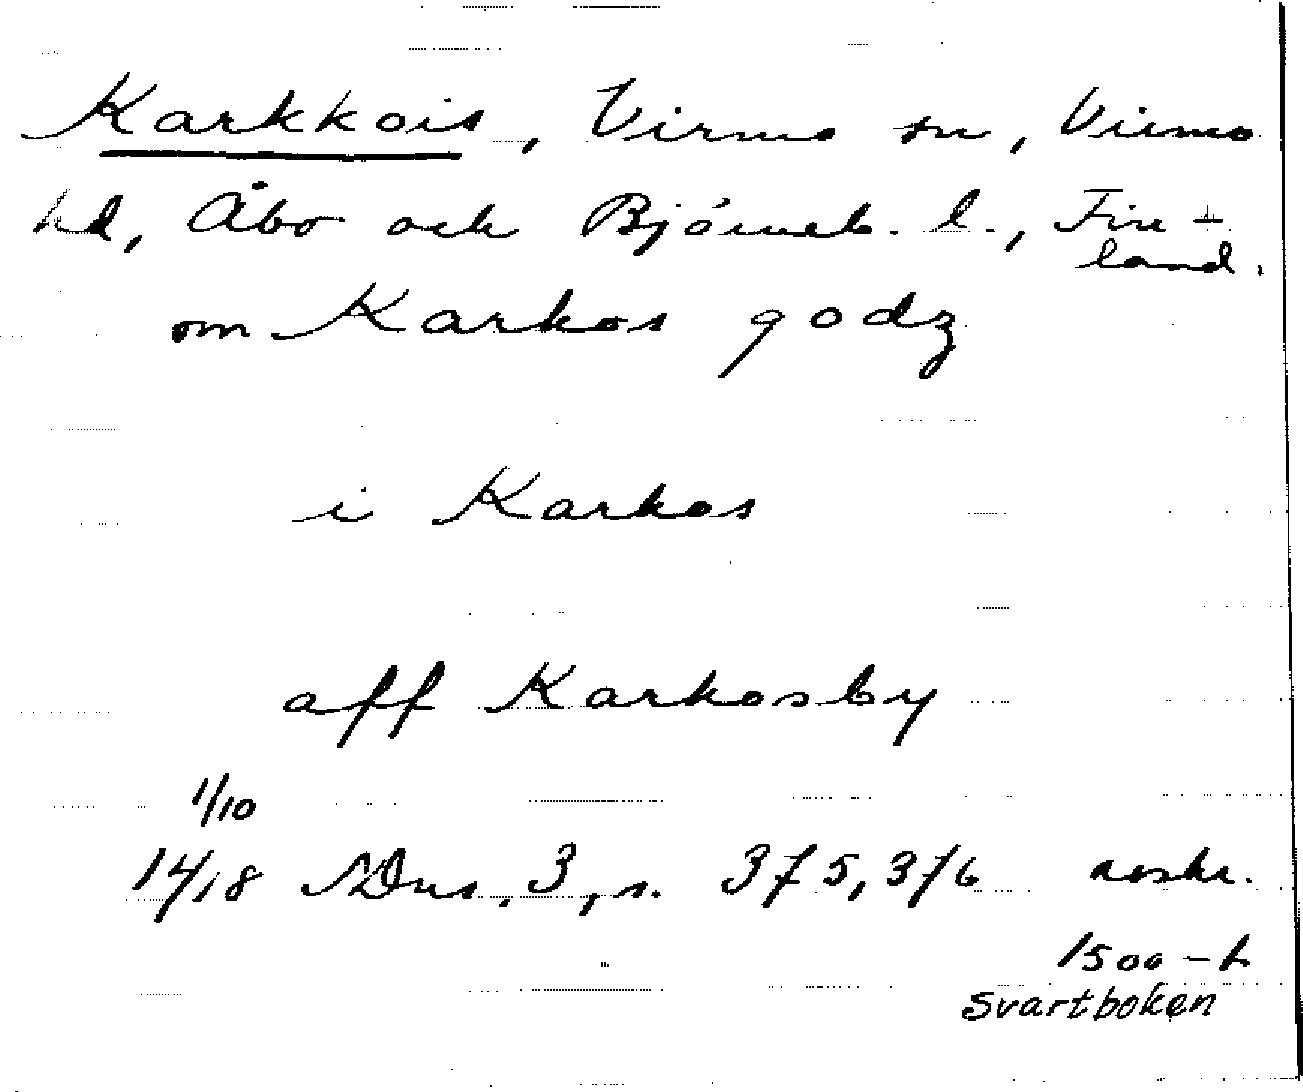 Karkkois, Virmo sn, Virmo
hd, Åbo och Björneb. l., Fin-
land.
om Karkos godz
i Karkos
aff Karkosby
1/10
1418 SDns. 3, s. 375, 376 avskr.
1500-t
Svartboken